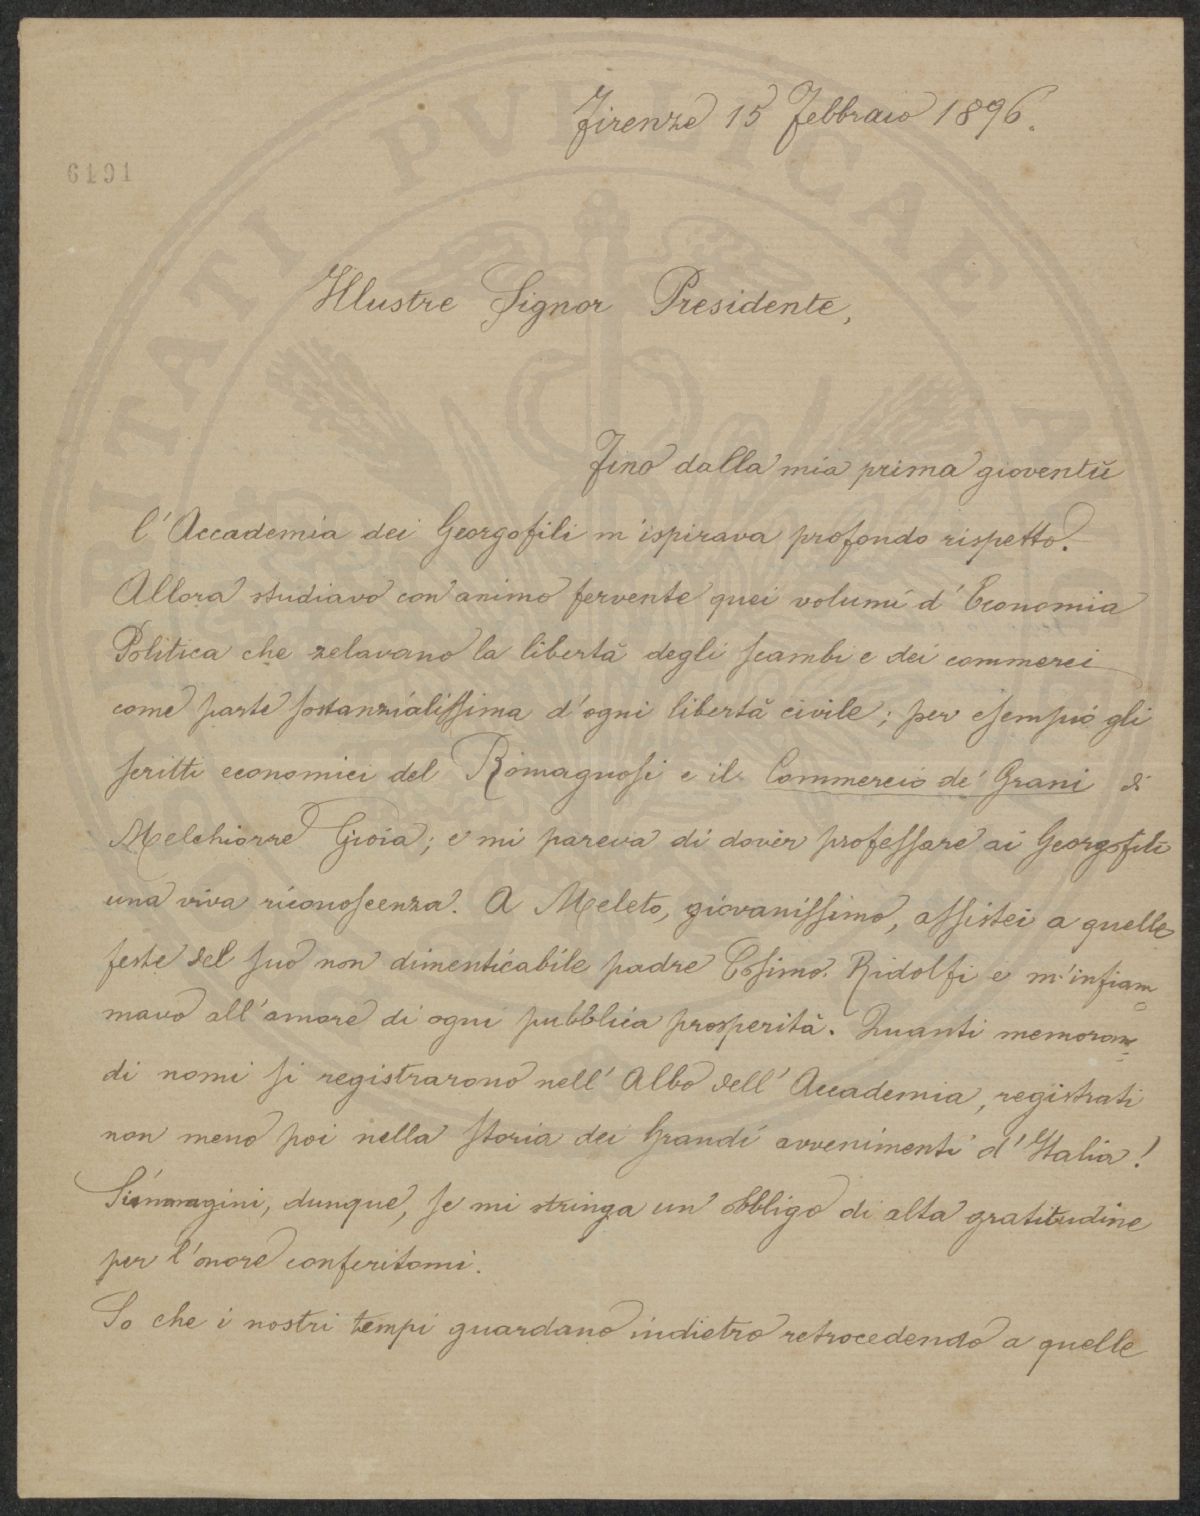 Firenze 15 Febbraio 1896.
6191
PROSPERITATI PVBLICAE AVGENDAE
Illustre Signor Presidente,
Fino dalla mia prima gioventù
l'Accademia dei Georgofili m'ispirava profondo rispetto.
Allora studiavo con animo fervente quei volumi d'Economia
Politica che zelavano la libertà degli scambi e dei commerci
come parte sostanzialissima d'ogni libertà civile; per esempio gli
scritti economici del Romagnosi e il Commercio de' Grani di
Melchiorre Gioia; e mi pareva di dover professare ai Georgofili
una viva riconoscenza. A Meleto, giovanissimo, assistei a quelle
feste del suo non dimenticabile padre Cosimo Ridolfi e m'infiam=
mavo all'amore di ogni pubblica prosperità. Quanti memoran=
di nomi si registrarono nell'Albo dell'Accademia, registrati
non meno poi nella storia dei Grandi avvenimenti d'Italia!
S'immagini, dunque, se mi stringa un obbligo di alta gratitudine
per l'onore conferitomi.
So che i nostri tempi guardano indietro retrocedendo a quelle